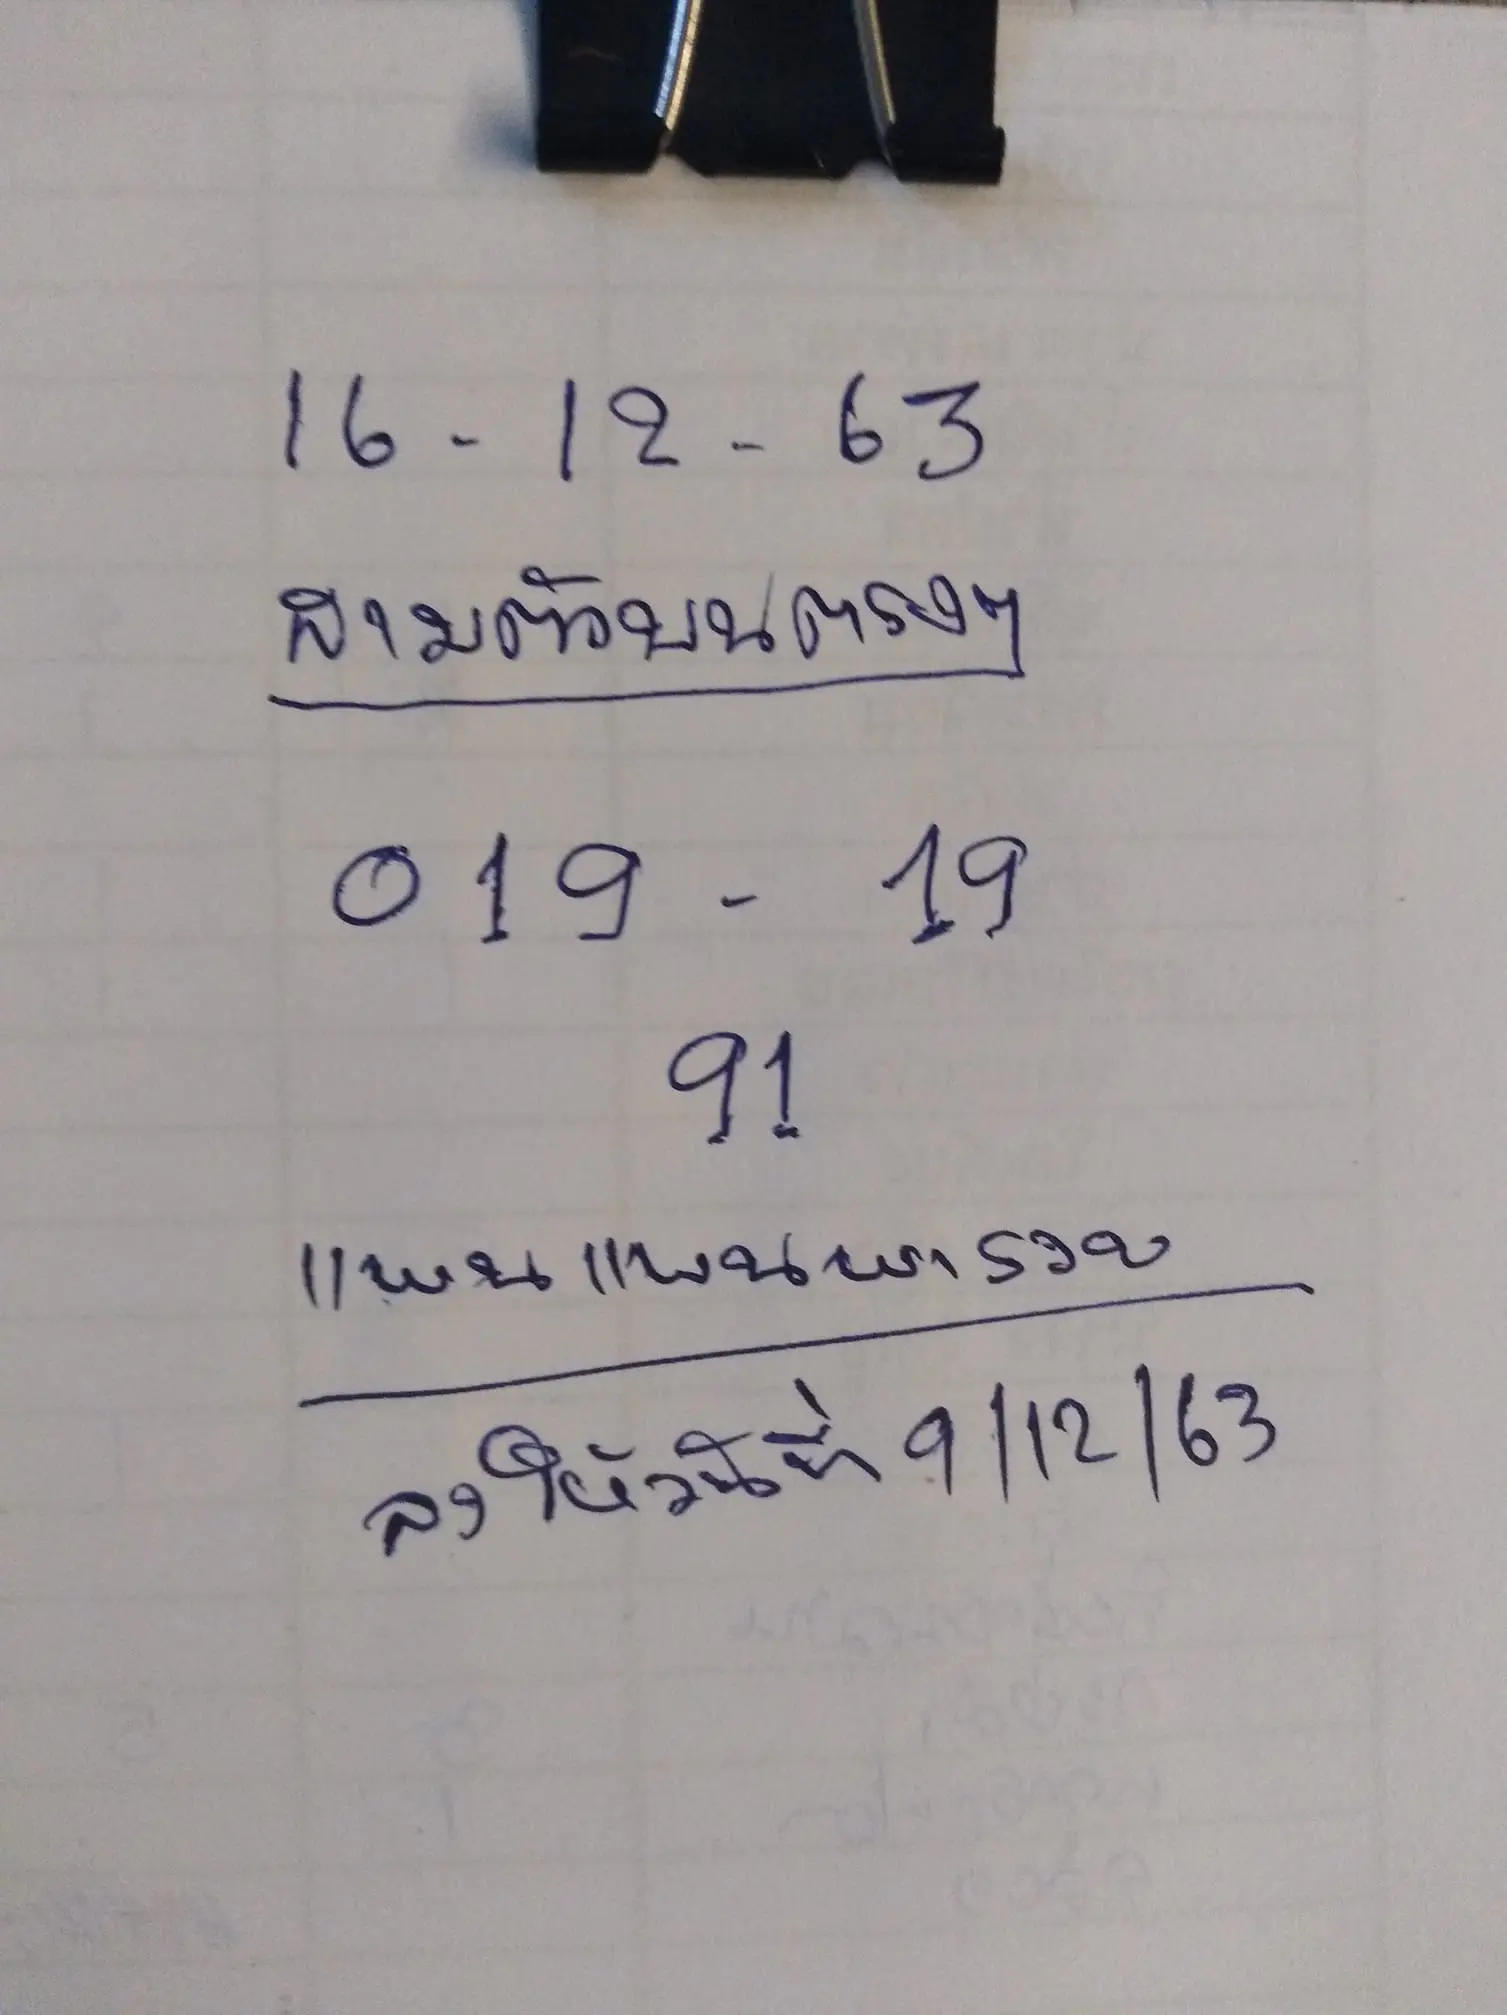 16-12-63
สามตัวบนตรงๆ
019 - 19
91
แพนแพนพารวย
ลงให้วันที่ 9/12/63